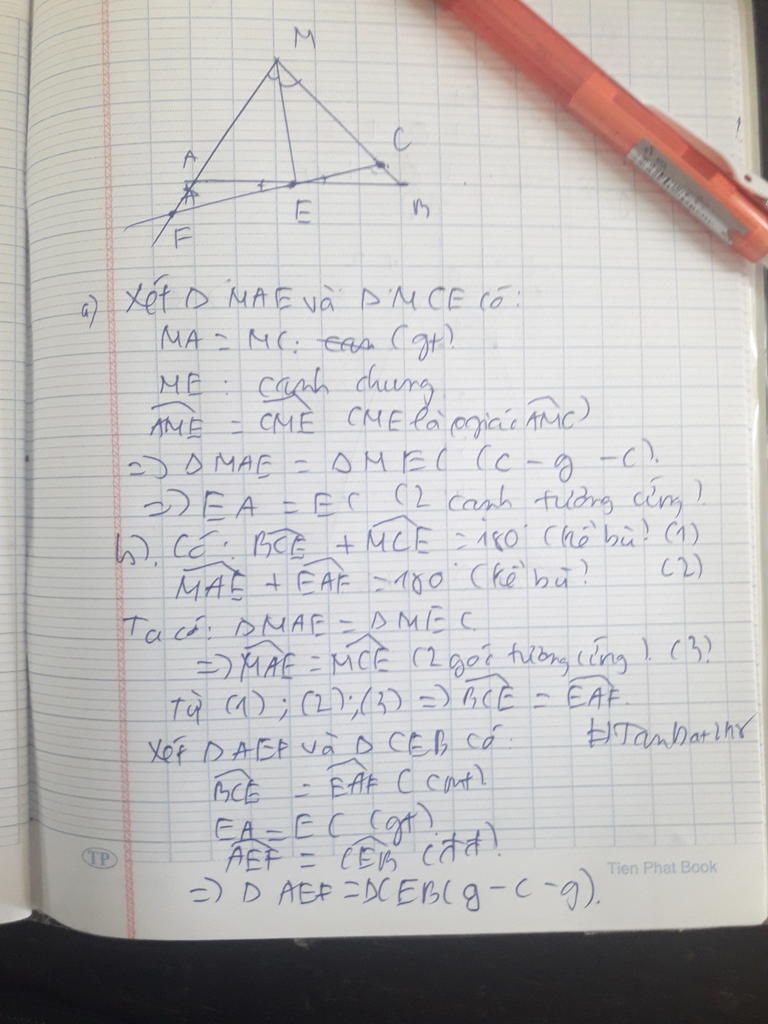 M
A
C
E
B
F
a) Xét Δ MAE và Δ MCE có:
MA = MC: (gt)
ME : cạnh chung
AME = CME (ME là pgiác AMC)
=> Δ MAE = Δ MEC (c-g-c).
=> EA = EC (2 cạnh tương ứng)
b). Có: BCE + MCE = 180° (kề bù) (1)
MAE + EAF = 180° (kề bù) (2)
Ta có: Δ MAE = Δ MEC
=> MAE = MCE (2 góc tương ứng). (3)
Từ (1); (2); (3) => BCE = EAF.
Xét Δ AEF và Δ CEB có:
BCE = EAF (cmt)
EA = EC (gt)
AEF = CEB (đđ).
=> Δ AEF = ΔCEB (g-c-g).
TP
Tien Phat Book